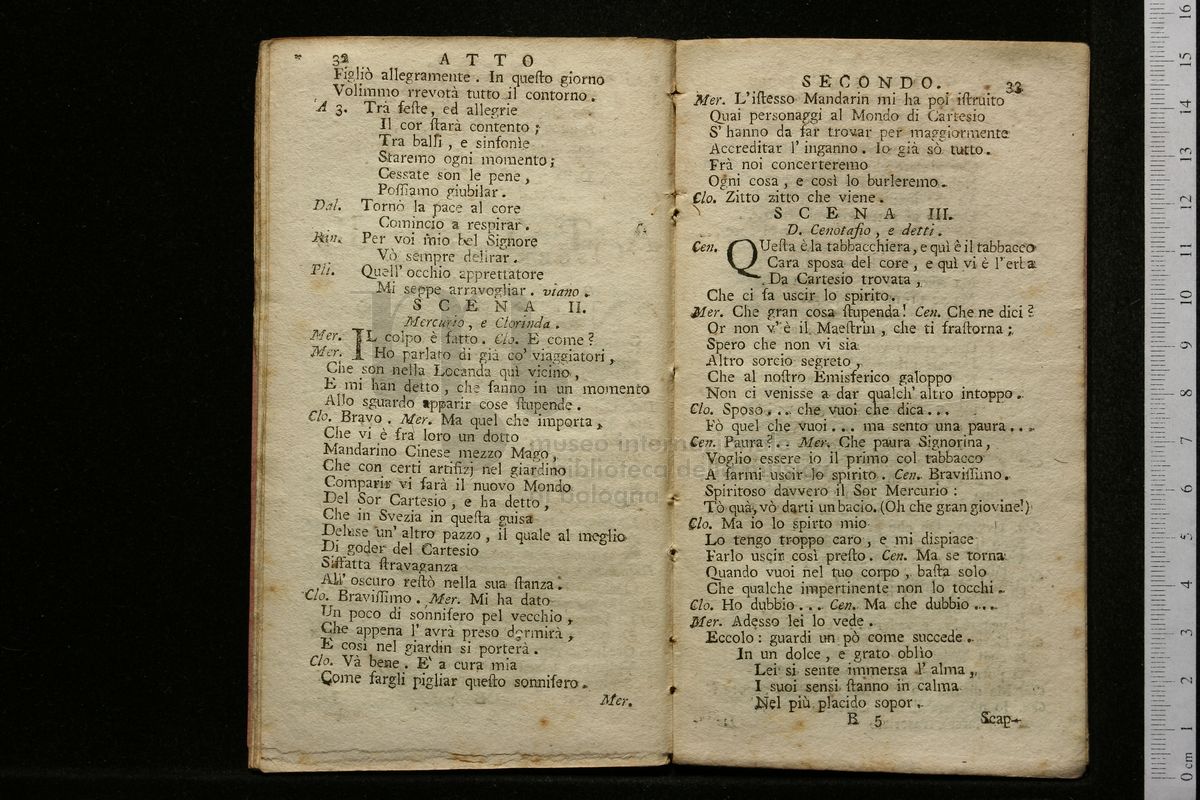 32 ATTO
Figliò allegramente. In questo giorno
Volimmo rrevotà tutto il contorno.
A 3. Trà feste, ed allegrie
Il cor starà contento;
Tra balli, e sinfonìe
Staremo ogni momento;
Cessate son le pene,
Possiamo giubilar.
Dal. Tornò la pace al core
Comincio a respirar.
Rin. Per voi mio bel Signore
Vò sempre delirar.
Pii. Quell' occhio apprettatore
Mi seppe arravogliar. viano.
SCENA II.
Mercurio, e Clorinda.
Mer. IL colpo è fatto. Clo. E come?
Mer. Ho parlato di già co' viaggiatori,
Che son nella Locanda quì vicino,
E mi han detto, che fanno in un momento
Allo sguardo apparir cose stupende.
Clo. Bravo. Mer. Ma quel che importa,
Che vi è fra loro un dotto
Mandarino Cinese mezzo Mago,
Che con certi artifizj nel giardino
Comparir vi farà il nuovo Mondo
Del Sor Cartesio, e ha detto,
Che in Svezia in questa guisa
Deluse un' altro pazzo, il quale al meglio
Di goder del Cartesio
Siffatta stravaganza
All' oscuro restò nella sua stanza.
Clo. Bravissimo. Mer. Mi ha dato
Un poco di sonnifero pel vecchio,
Che appena l' avrà preso dormirà,
E così nel giardin si porterà.
Clo. Và bene. E' a cura mia
Come fargli pigliar questo sonnifero.
Mer.
SECONDO. 33
Mer. L'istesso Mandarin mi ha poi istruito
Quai personaggi al Mondo di Cartesio
S' hanno da far trovar per maggiormente
Accreditar l' inganno. Io già sò tutto.
Frà noi concerteremo
Ogni cosa, e così lo burleremo.
Clo. Zitto zitto che viene.
SCENA III.
D. Cenotafio, e detti.
Cen. QUesta è la tabbacchiera, e quì è il tabbacco
Cara sposa del core, e quì vi è l'erba
Da Cartesio trovata,
Che ci fa uscir lo spirito.
Mer. Che gran cosa stupenda! Cen. Che ne dici?
Or non v'è il Maestrin, che ti frastorna;
Spero che non vi sia
Altro sorcio segreto,
Che al nostro Emisferico galoppo
Non ci venisse a dar qualch' altro intoppo.
Clo. Sposo... che vuoi che dica...
Fò quel che vuoi... ma sento una paura...
Cen. Paura?.. Mer. Che paura Signorina,
Voglio essere io il primo col tabbacco
A farmi uscir lo spirito. Cen. Bravissimo.
Spiritoso davvero il Sor Mercurio:
Tò quà, vò darti un bacio. (Oh che gran giovine!)
Clo. Ma io lo spirto mio
Lo tengo troppo caro, e mi dispiace
Farlo uscir così presto. Cen. Ma se torna
Quando vuoi nel tuo corpo, basta solo
Che qualche impertinente non lo tocchi.
Clo. Ho dubbio... Cen. Ma che dubbio...
Mer. Adesso lei lo vede.
Eccolo: guardi un pò come succede.
In un dolce, e grato oblìo
Lei si sente immersa l' alma,
I suoi sensi stanno in calma
Nel più placido sopor.
B 5 Scap-